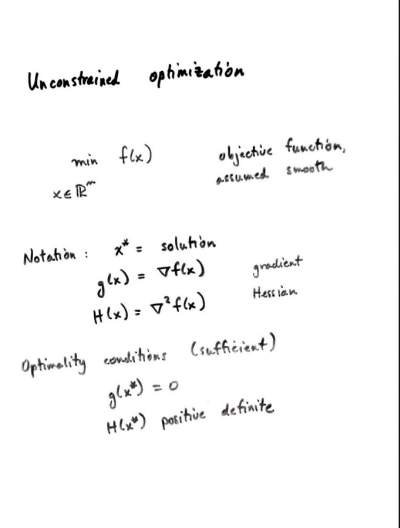 Unconstrained optimization
min f(x) objective function,
x∈ℝᵐ assumed smooth
Notation: x* = solution
g(x) = ∇f(x) gradient
H(x) = ∇²f(x) Hessian
Optimality conditions (sufficient)
g(x*) = 0
H(x*) positive definite